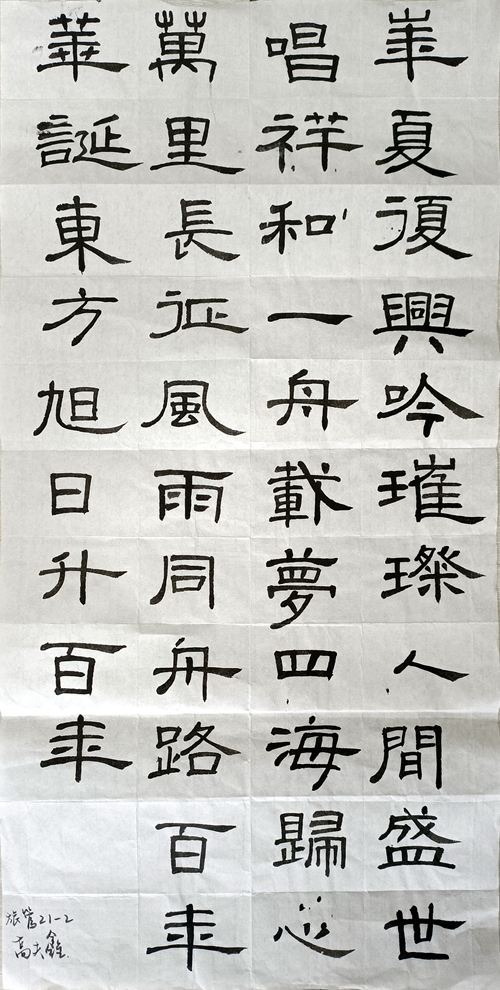 崋夏復興吟璀璨人間盛世
唱祥和一舟載夢四海歸心
萬里長征風雨同舟路百年
華誕東方旭日升百年
旅管21-2